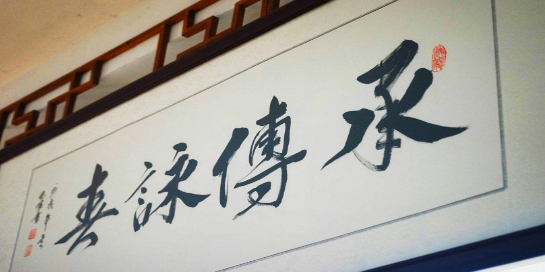 承傳詠春